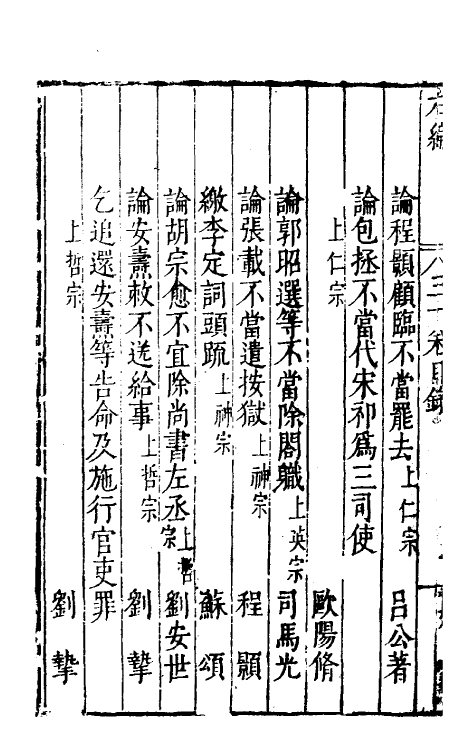 論程顥顧臨不當罷去上仁宗 呂公著
論包拯不當代宋祁爲三司使
上仁宗 歐陽脩
論郭昭選等不當除閣職上英宗 司馬光
論張載不當遣按獄上神宗 程顥
繳李定詞頭疏上神宗 蘇頌
論胡宗愈不宜除尚書左丞上哲宗 劉安世
論安燾敕不送給事上哲宗 劉摯
乞追還安燾等告命及施行官吏罪
上哲宗 劉摯